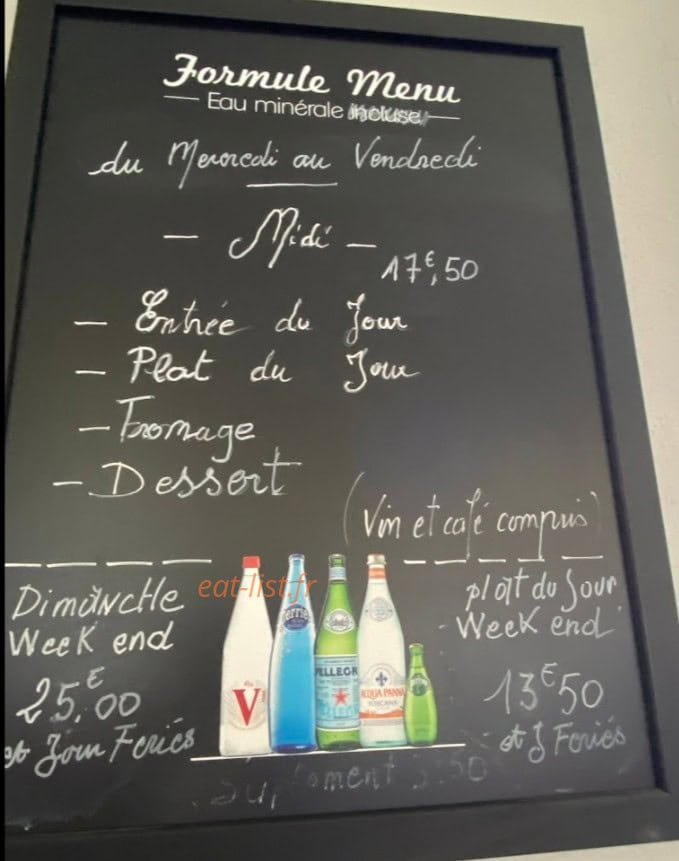 Formule Menu
Eau minérale incluse
du Mercredi au Vendredi
- Midi -
17€,50
- Entrée du Jour
- Plat du Jour
- Fromage
- Dessert
(Vin et café compris)
Dimanche
Week end
25,€00
et Jour Feriés
eat-list.fr
V
Perrier
S.PELLEGRINO
ACQUA PANNA
TOSCANA
plat du Jour
- Week end
13€50
et J Feriés